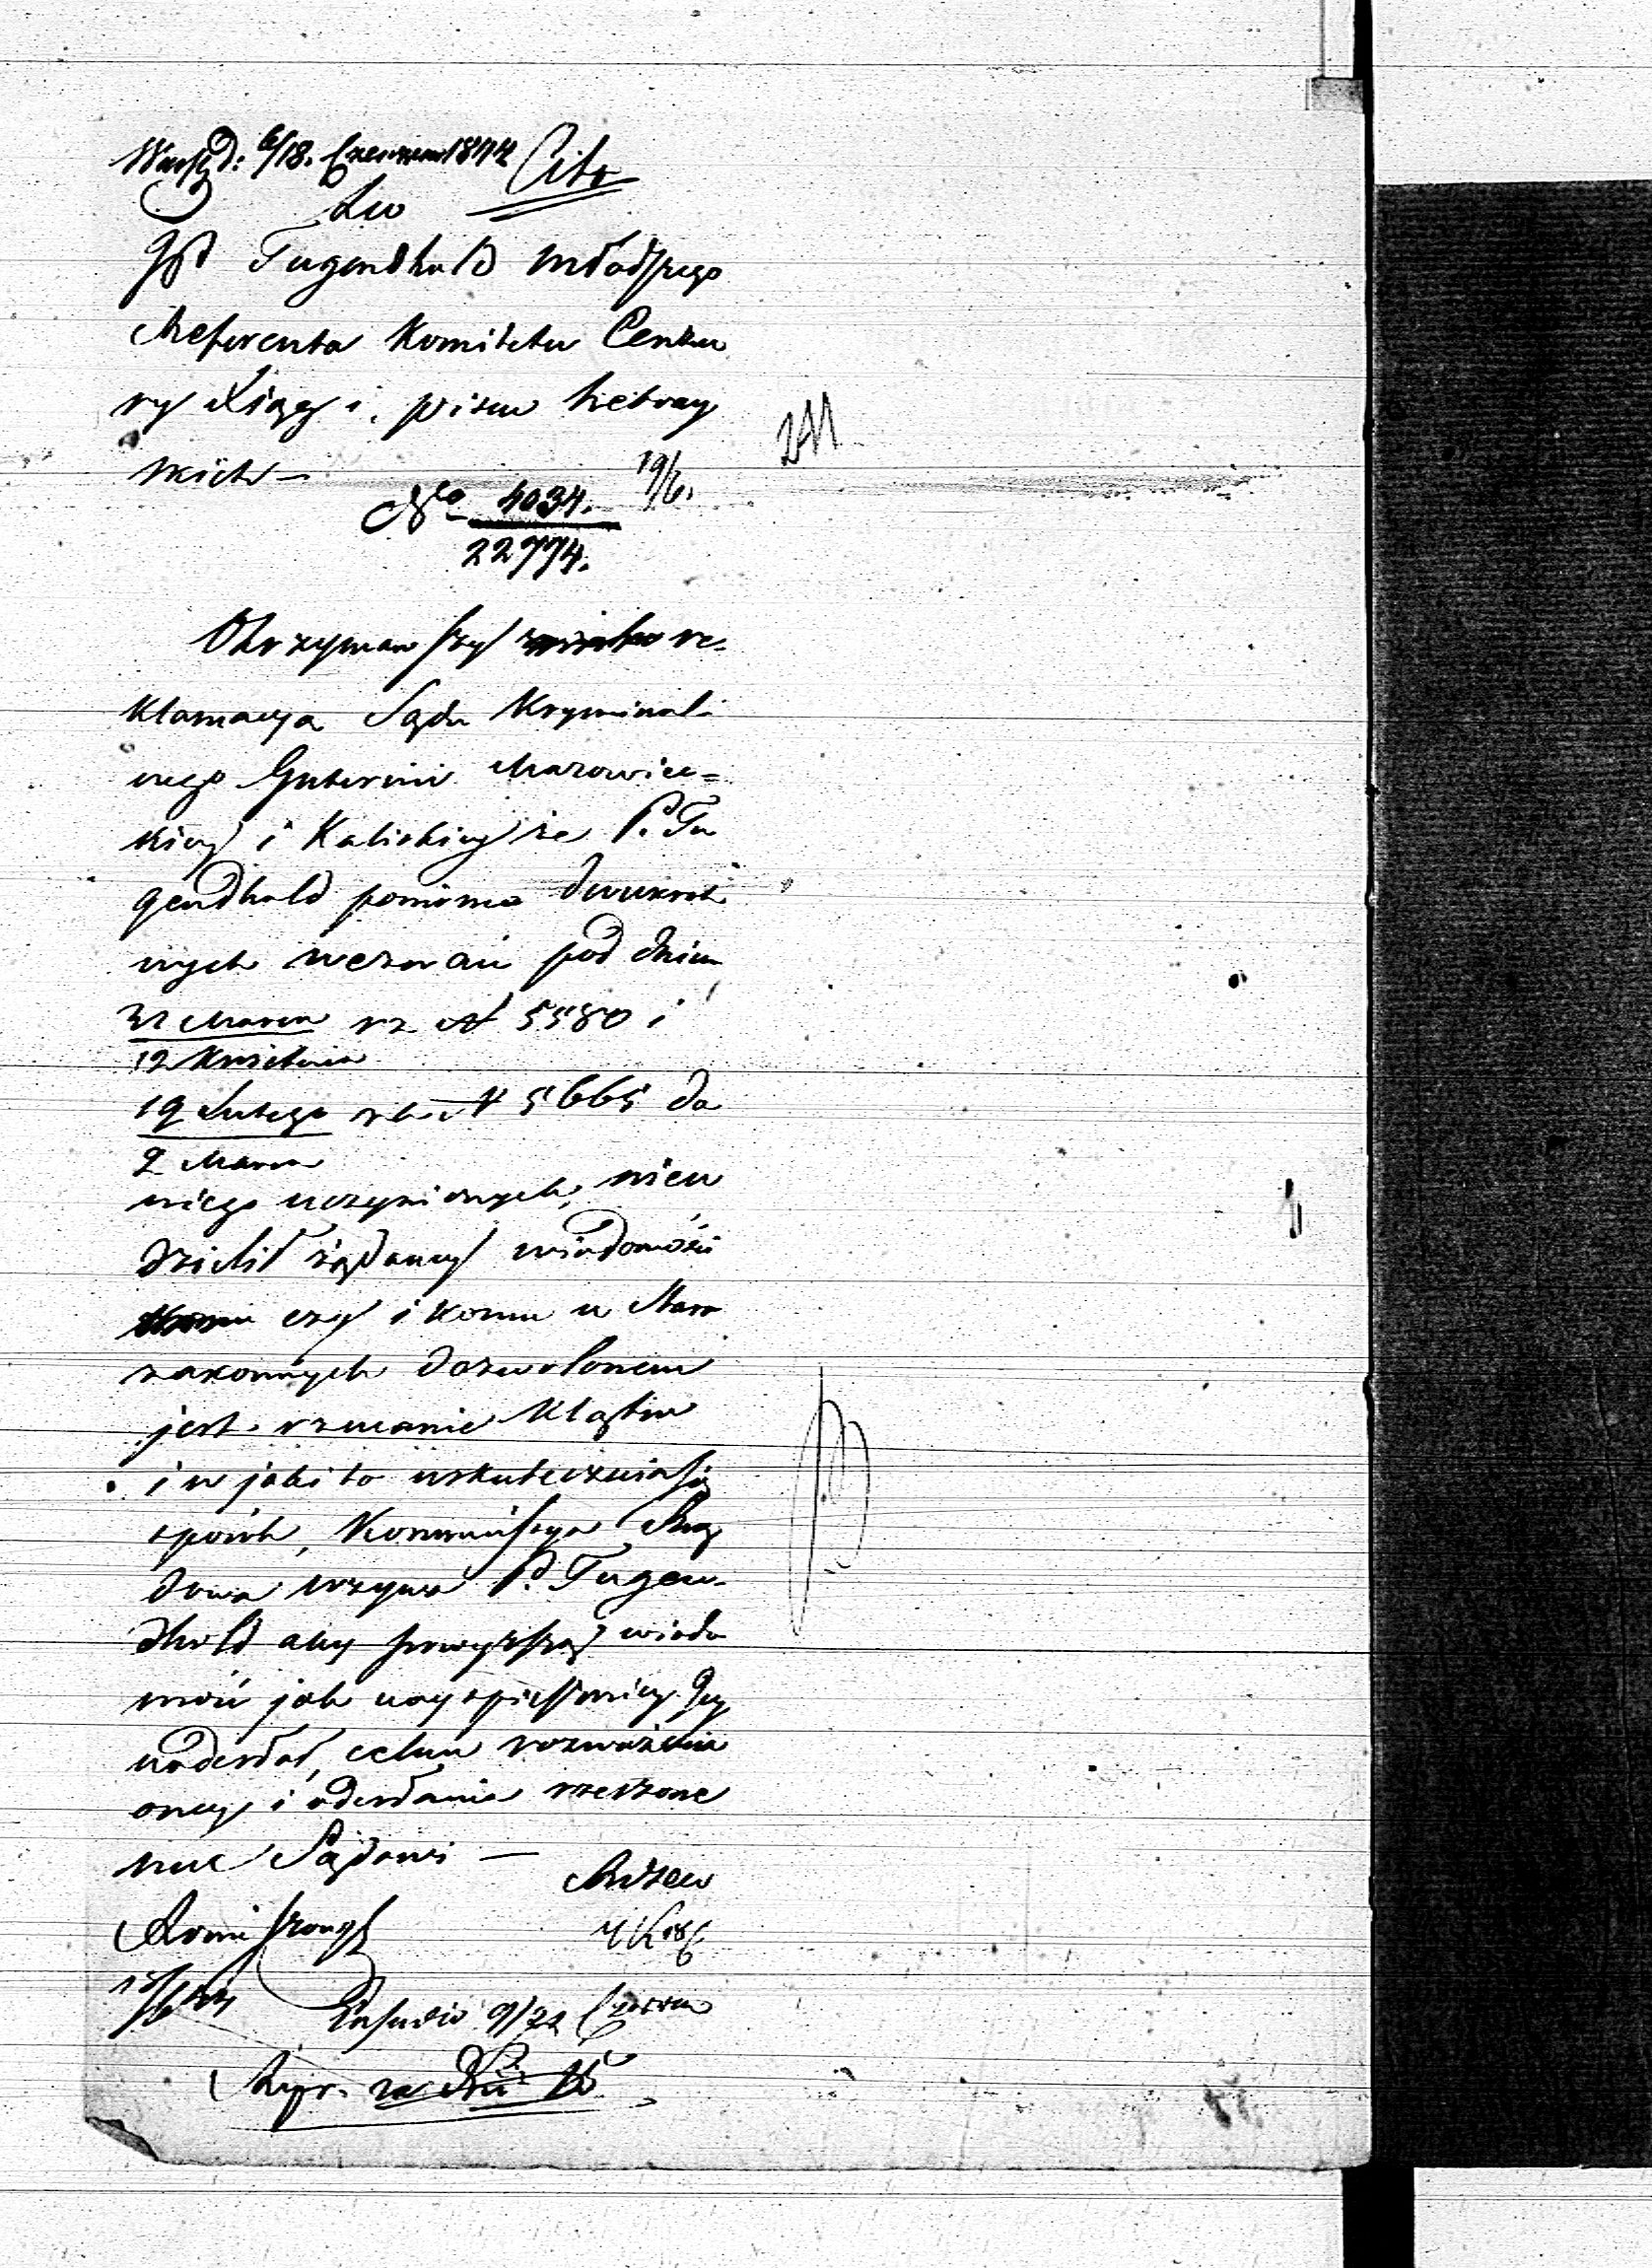 Warsz. d: 6/18. Czerwca 1844 Cito
Do
JP Tugendhold młodszego
Referenta Komitetu Cenzu
ry Xiąg i pism hebray
skich –
19/6.
241
Nro 4034.
22774.
Otrzymawszy re-
klamacya Sądu Kryminal-
nego Gubernii Mazowiec=
kiey i Kaliskiey że P. Tu
gendhold pomimo dwukrot
nych wezwań pod dniem
31 Marca rz N 5580 i
12 Kwietnia
19 Lutego rb N 5665 do
2 Marca
niego uczynionych, nieu
dzielił żądaney wiadomości
czy i komu u Staro
zakonnych dozwolonem
jest rzucanie klątw
i w jaki to uskutecznia się
sposób, Kommissya Rzą
dowa wzywa P. Tugen-
dhold aby powyższą wiado
mość jak nayspieszniey Jey
nadesłał, celem rozważenia
oney i odesłania rzeczone
mu Sądowi –
18/6 44
9/21 Czerwca